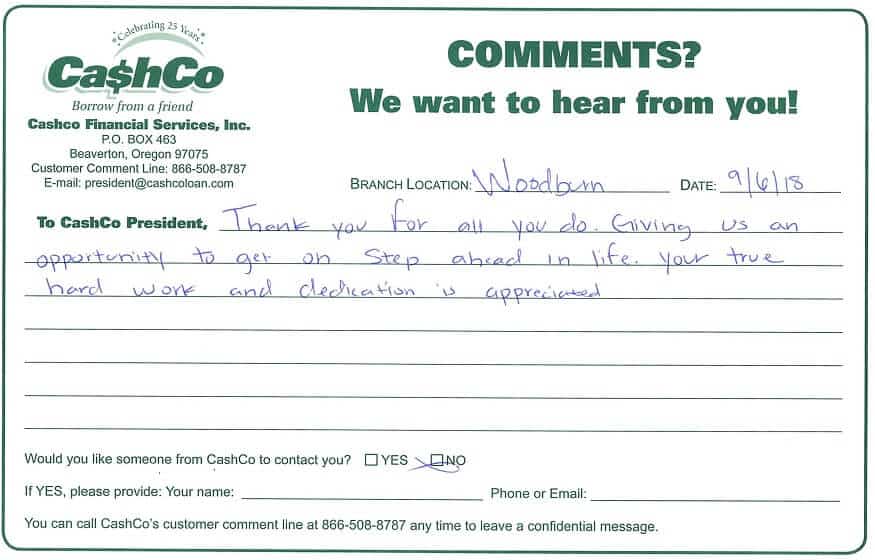 Celebrating 25 Years
Ca$hCo
Borrow from a friend
Cashco Financial Services, Inc.
P.O. BOX 463
Beaverton, Oregon 97075
Customer Comment Line: 866-508-8787
E-mail: president@cashcoloan.com
COMMENTS?
We want to hear from you!
BRANCH LOCATION: Woodburn DATE: 9/6/18
To CashCo President, Thank you for all you do. Giving us an
opportunity to get on Step ahead in life. Your true
hard work and dedication is appreciated
Would you like someone from CashCo to contact you? YES NO
If YES, please provide: Your name: Phone or Email:
You can call CashCo's customer comment line at 866-508-8787 any time to leave a confidential message.